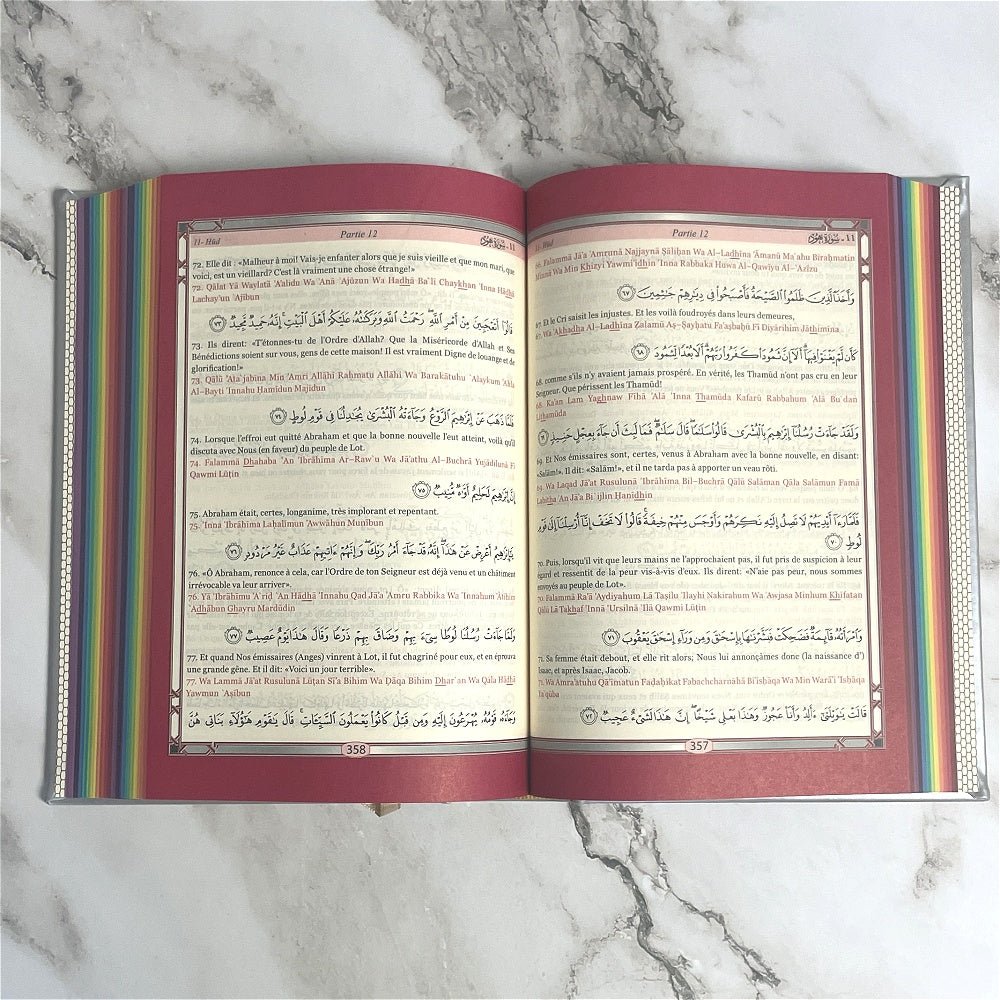 11- Hūd Partie 12 سورة هود - ١١
66. Falammā Jā'a 'Amrunā Najjaynā Şāliĥan Wa Al-Ladhīna 'Āmanū Ma`ahu Biraĥmatin
Minnā Wa Min Khizyi Yawmi'idhin 'Inna Rabbaka Huwa Al-Qawīyu Al-`Azīzu
وَأَخَذَ الَّذِينَ ظَلَمُوا الصَّيْحَةُ فَأَصْبَحُوا فِي دِيَارِهِمْ جَاثِمِينَ ٦٧
67. Et le Cri saisit les injustes. Et les voilà foudroyés dans leurs demeures,
67. Wa 'Akhadha Al-Ladhīna Žalamū Aş-Şayĥatu Fa'aşbaĥū Fī Diyārihim Jāthimīna
كَأَن لَّمْ يَغْنَوْا فِيهَا أَلَا إِنَّ ثَمُودَا كَفَرُوا رَبَّهُمْ أَلَا بُعْدًا لِّثَمُودَ ٦٨
68. comme s'ils n'y avaient jamais prospéré. En vérité, les Thamûd n'ont pas cru en leur
Seigneur. Que périssent les Thamûd!
68. Ka'an Lam Yaghnaw Fīhā 'Alā 'Inna Thamūda Kafarū Rabbahum 'Alā Bu`dan
Lithamūda
وَلَقَدْ جَاءَتْ رُسُلُنَا إِبْرَاهِيمَ بِالْبُشْرَىٰ قَالُوا سَلَامًا قَالَ سَلَامٌ فَمَا لَبِثَ أَن جَاءَ بِعِجْلٍ حَنِيذٍ ٦٩
69. Et Nos émissaires sont, certes, venus à Abraham avec la bonne nouvelle, en disant:
«Salâm!». Il dit: «Salâm!», et il ne tarda pas à apporter un veau rôti.
69. Wa Laqad Jā'at Rusulunā 'Ibrāhīma Bil-Buchrá Qālū Salāman Qāla Salāmun Famā
Labitha 'An Jā'a Bi`ijlin Ĥanīdhin
فَلَمَّا رَأَىٰ أَيْدِيَهُمْ لَا تَصِلُ إِلَيْهِ نَكِرَهُمْ وَأَوْجَسَ مِنْهُمْ خِيفَةً قَالُوا لَا تَخَفْ إِنَّا أُرْسِلْنَا إِلَىٰ قَوْمِ
لُوطٍ ٧٠
70. Puis, lorsqu'il vit que leurs mains ne l'approchaient pas, il fut pris de suspicion à leur
égard et ressentit de la peur vis-à-vis d'eux. Ils dirent: «N'aie pas peur, nous sommes
envoyés au peuple de Lot».
70. Falammā Ra'á 'Aydiyahum Lā Taşilu 'Ilayhi Nakirahum Wa 'Awjasa Minhum Khīfatan
Qālū Lā Takhaf 'Innā 'Ursilnā 'Ilá Qawmi Lūţin
وَامْرَأَتُهُ قَائِمَةٌ فَضَحِكَتْ فَبَشَّرْنَاهَا بِإِسْحَاقَ وَمِن وَرَاءِ إِسْحَاقَ يَعْقُوبَ ٧١
71. Sa femme était debout, et elle rit alors; Nous lui annonçâmes donc (la naissance d')
Isaac, et après Isaac, Jacob.
71. Wa Amra'atuhu Qā'imatun Faďaĥikat Fabachcharnāhā Bi'isĥāqa Wa Min Warā'i 'Isĥāqa
Ya`qūba
قَالَتْ يَا وَيْلَتَىٰ أَأَلِدُ وَأَنَا عَجُوزٌ وَهَٰذَا بَعْلِي شَيْخًا إِنَّ هَٰذَا لَشَيْءٌ عَجِيبٌ ٧٢
357
11- Hūd Partie 12 سورة هود - ١١
72. Elle dit : «Malheur à moi! Vais-je enfanter alors que je suis vieille et que mon mari, que
voici, est un vieillard? C'est là vraiment une chose étrange!»
72. Qālat Yā Waylatá 'A'alidu Wa 'Anā `Ajūzun Wa Hadhā Ba`lī Chaykhan 'Inna Hādhā
Lachay'un `Ajībun
قَالُوا أَتَعْجَبِينَ مِنْ أَمْرِ اللَّهِ رَحْمَتُ اللَّهِ وَبَرَكَاتُهُ عَلَيْكُمْ أَهْلَ الْبَيْتِ إِنَّهُ حَمِيدٌ مَّجِيدٌ ٧٣
73. Ils dirent: «T'étonnes-tu de l'Ordre d'Allah? Que la Miséricorde d'Allah et Ses
Bénédictions soient sur vous, gens de cette maison! Il est vraiment Digne de louange et de
glorification!»
73. Qālū 'Ata`jabīna Min 'Amri Allāhi Raĥmatu Allāhi Wa Barakātuhu `Alaykum 'Ahla
Al-Bayti 'Innahu Ĥamīdun Majīdun
فَلَمَّا ذَهَبَ عَنْ إِبْرَاهِيمَ الرَّوْعُ وَجَاءَتْهُ الْبُشْرَىٰ يُجَادِلُنَا فِي قَوْمِ لُوطٍ ٧٤
74. Lorsque l'effroi eut quitté Abraham et que la bonne nouvelle l'eut atteint, voilà qu'il
discuta avec Nous (en faveur) du peuple de Lot.
74. Falammā Dhahaba `An 'Ibrāhīma Ar-Raw`u Wa Jā'at/hu Al-Buchrá Yujādilunā Fī
Qawmi Lūţin
إِنَّ إِبْرَاهِيمَ لَحَلِيمٌ أَوَّاهٌ مُّنِيبٌ ٧٥
75. Abraham était, certes, longanime, très implorant et repentant.
75. 'Inna 'Ibrāhīma Laĥalīmun 'Awwāhun Munībun
يَا إِبْرَاهِيمُ أَعْرِضْ عَنْ هَٰذَا إِنَّهُ قَدْ جَاءَ أَمْرُ رَبِّكَ وَإِنَّهُمْ آتِيهِمْ عَذَابٌ غَيْرُ مَرْدُودٍ ٧٦
76. «Ô Abraham, renonce à cela, car l'Ordre de ton Seigneur est déjà venu et un châtiment
irrévocable va leur arriver».
76. Yā 'Ibrāhīmu 'A`riđ `An Hādhā 'Innahu Qad Jā'a 'Amru Rabbika Wa 'Innahum 'Ātīhim
`Adhābun Ghayru Mardūdin
وَلَمَّا جَاءَتْ رُسُلُنَا لُوطًا سِيءَ بِهِمْ وَضَاقَ بِهِمْ ذَرْعًا وَقَالَ هَٰذَا يَوْمٌ عَصِيبٌ ٧٧
77. Et quand Nos émissaires (Anges) vinrent à Lot, il fut chagriné pour eux, et en éprouva
une grande gêne. Et il dit: «Voici un jour terrible».
77. Wa Lammā Jā'at Rusulunā Lūţan Sī'a Bihim Wa Đāqa Bihim Dhar`an Wa Qala Hādhā
Yawmun `Aşībun
وَجَاءَهُ قَوْمُهُ يُهْرَعُونَ إِلَيْهِ وَمِن قَبْلُ كَانُوا يَعْمَلُونَ السَّيِّئَاتِ قَالَ يَا قَوْمِ هَٰؤُلَاءِ بَنَاتِي هُنَّ
358